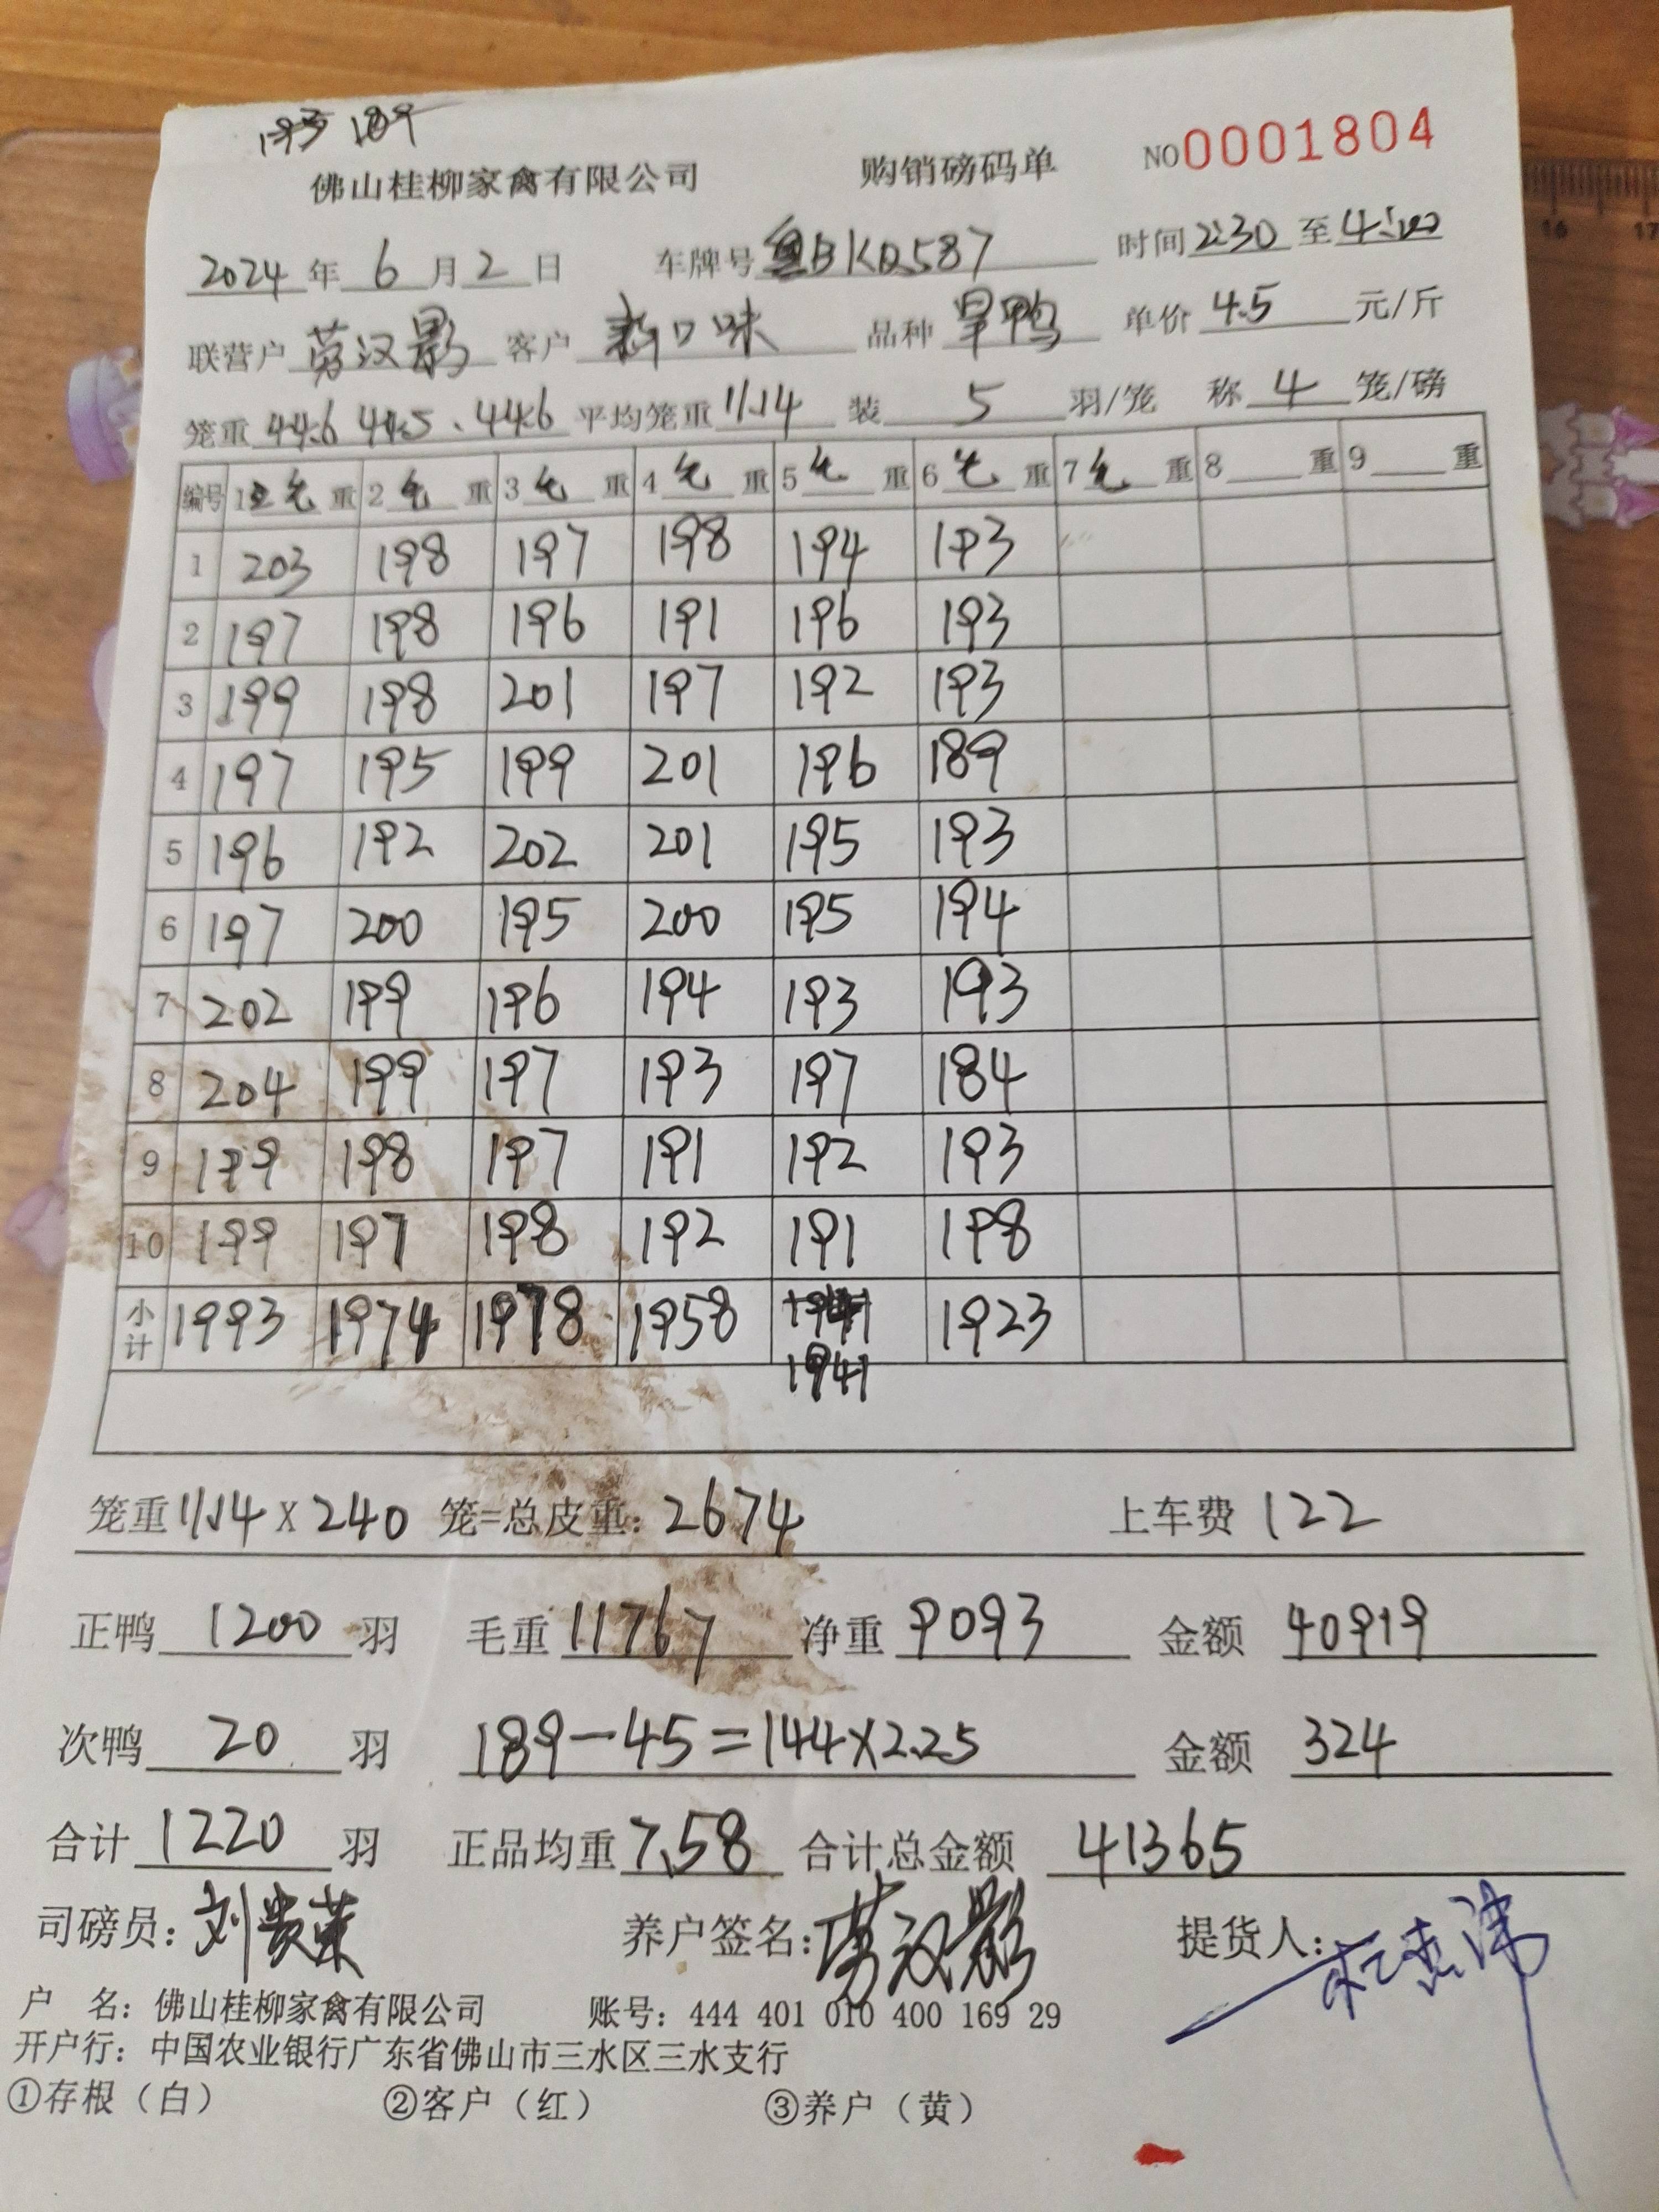 193 189
佛山桂柳家禽有限公司 购销磅码单 NO 0001804
2024 年 6 月 2 日 车牌号 粤BKQ587 时间 2:30 至 4:00
联营户 劳汉影 客户 新口味 品种 旱鸭 单价 4.5 元/斤
笼重 44.6 44.5 、44.6 平均笼重 11.14 装 5 羽/笼 称 4 笼/磅
编号 1 毛 重 2 毛 重 3 毛 重 4 毛 重 5 毛 重 6 毛 重 7 毛 重 8 重 9 重
1 203 198 197 198 194 193
2 197 198 196 191 196 193
3 199 198 201 197 192 193
4 197 195 199 201 196 189
5 196 192 202 201 195 193
6 197 200 195 200 195 194
7 202 199 196 194 193 193
8 204 199 197 193 197 184
9 199 198 197 191 192 193
10 199 197 198 192 191 198
小计 1993 1974 1978 1958 1941 1923
1941
笼重 11.14 X 240 笼=总皮重: 2674 上车费 122
正鸭 1200 羽 毛重 11767 净重 9093 金额 40919
次鸭 20 羽 189-45=144X2.25 金额 324
合计 1220 羽 正品均重 7.58 合计总金额 41365
司磅员: 刘贵荣 养户签名: 劳汉影 提货人:
户 名: 佛山桂柳家禽有限公司 账号: 444 401 010 400 169 29
开户行: 中国农业银行广东省佛山市三水区三水支行
①存根（白） ②客户（红） ③养户（黄）